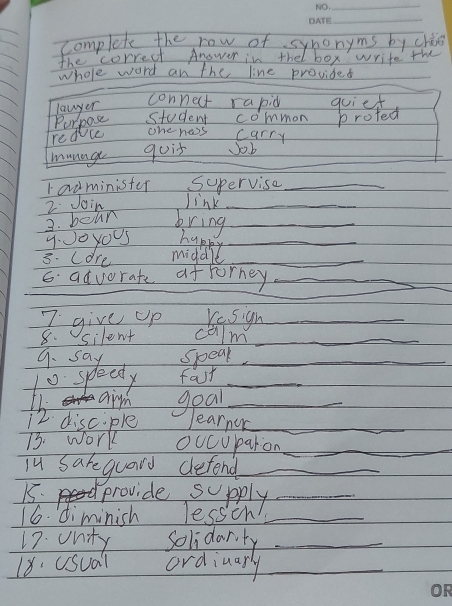 NO.
DATE
Complete the row of synonyms by
the correct Answer in the box write the
whole word an the line provided
lawyer connect rapid quiet
Purpose student common proted
reduce oneness carry
manage quit Job
1 administer supervise
2. Join link
3. bear bring
4. Joyous happy
5. Core middle
6. advorate attorney
7. give up resign
8. silent calm
9. say speak
10. speedy fast
11. aim goal
12. disciple learner
13. work occupation
14 safeguard defend
15. provide supply
16. diminish lessen
17. unity solidarity
18. usual ordinary
OR